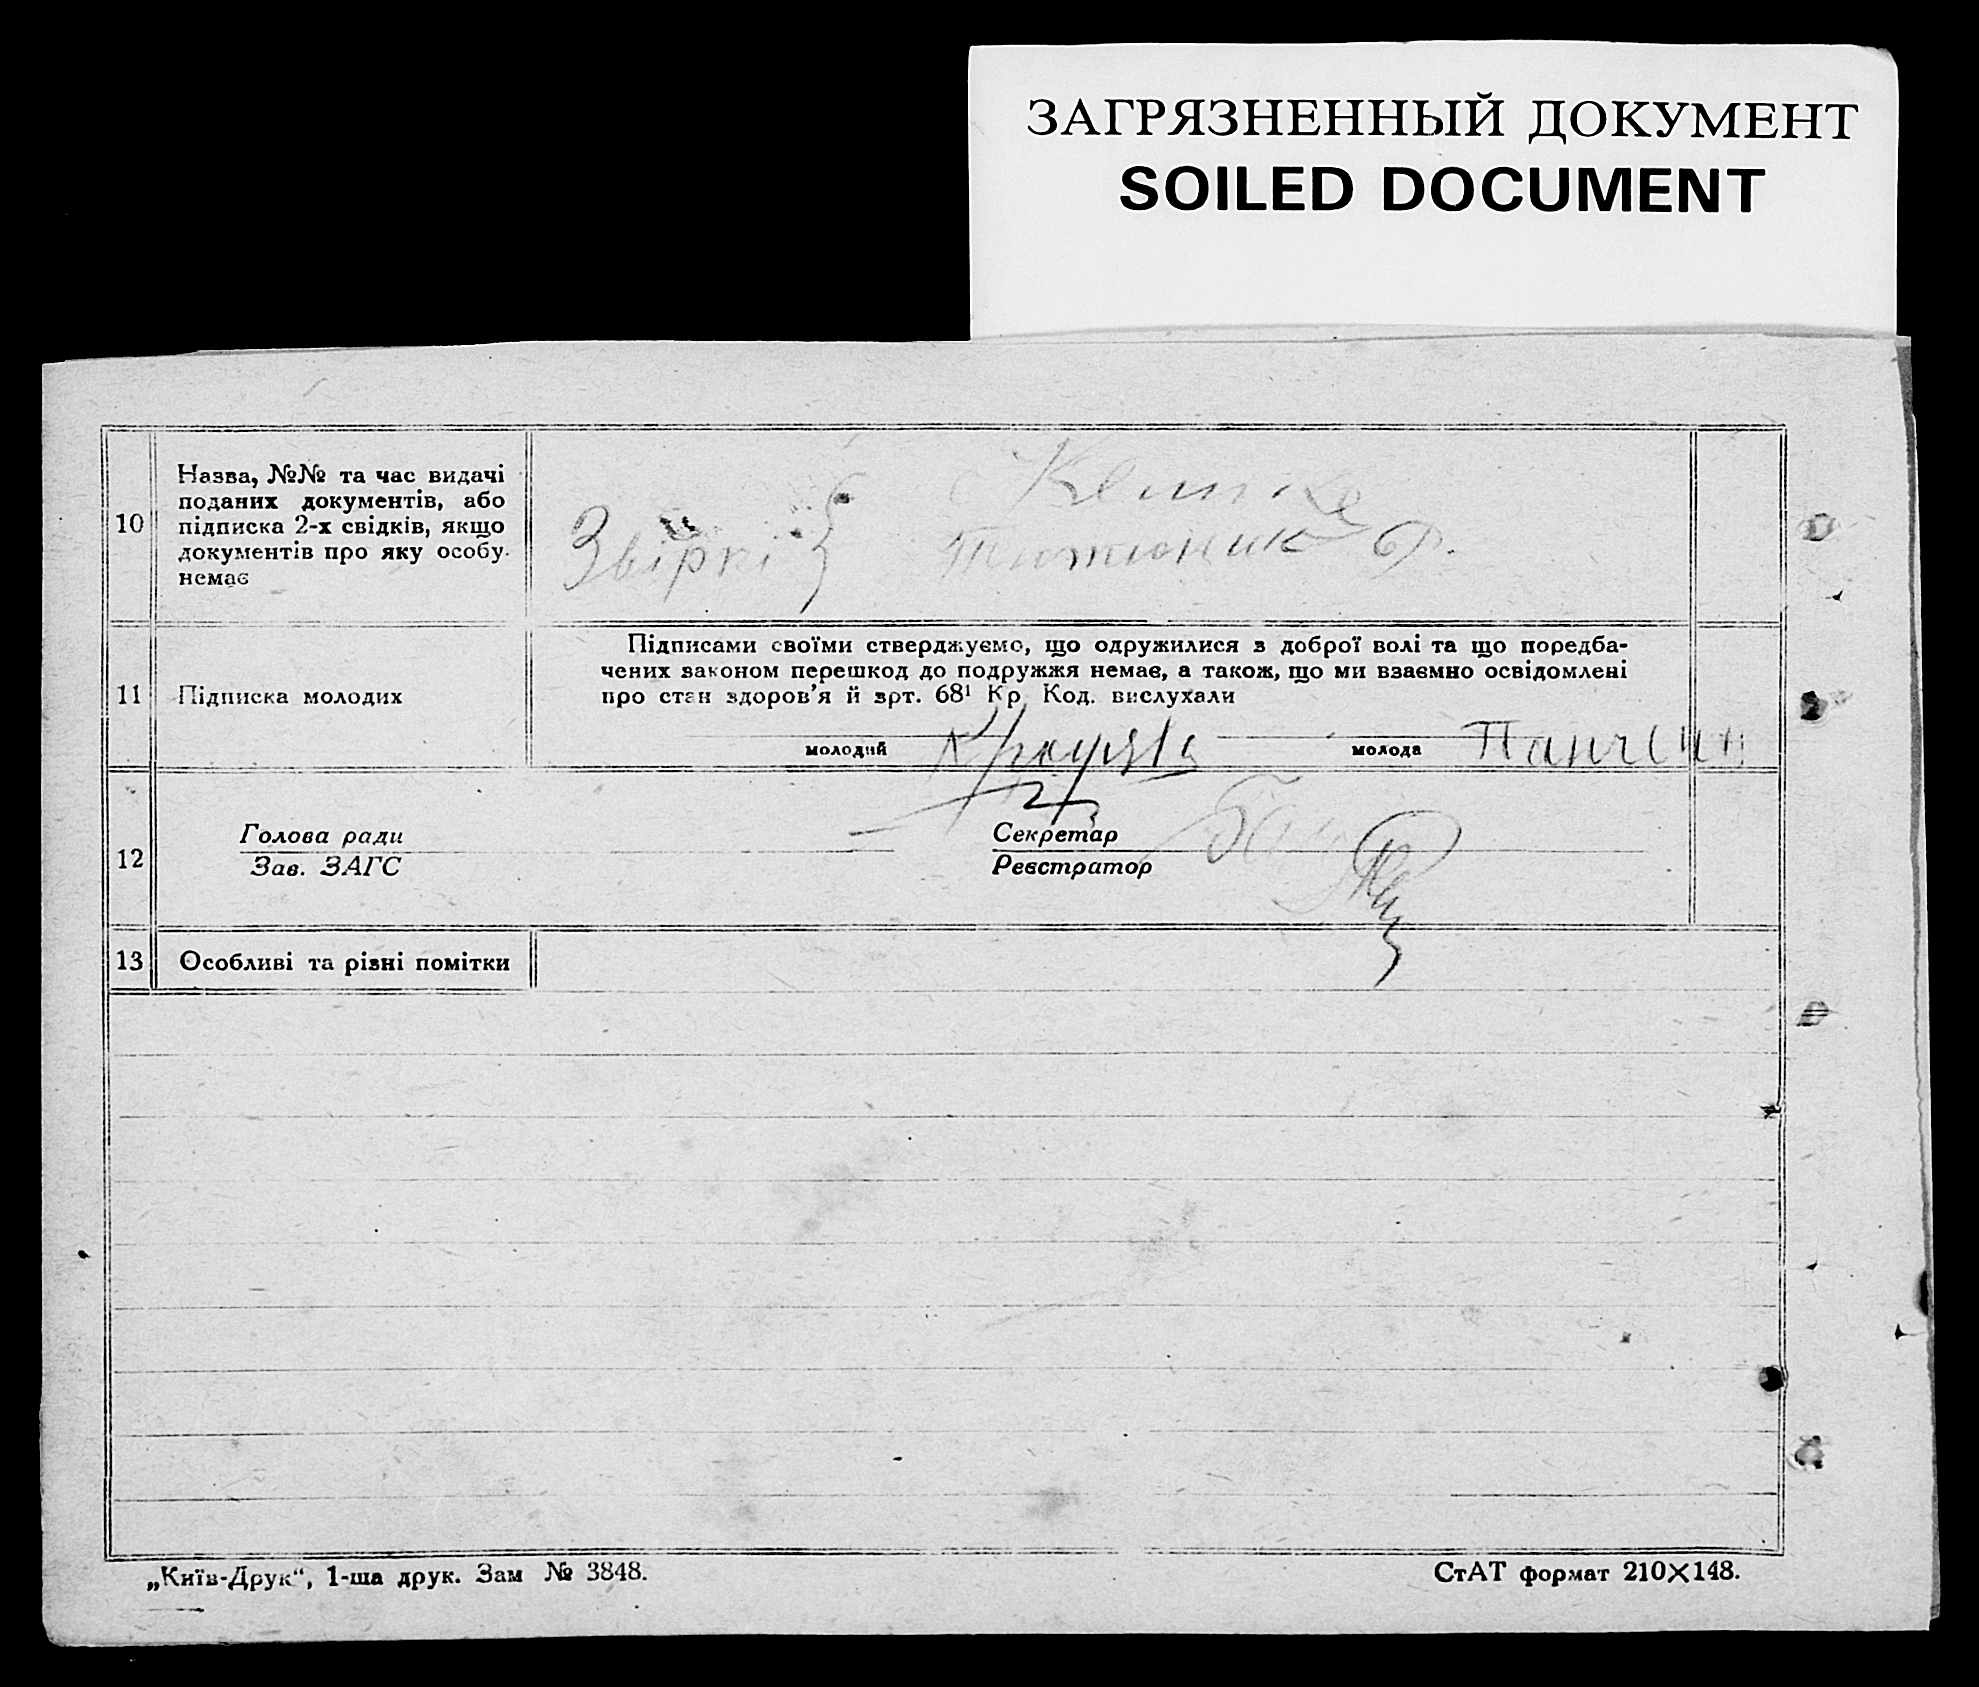 ЗАГРЯЗНЕННЫЙ ДОКУМЕНТ
SOILED DOCUMENT
10
Назва, №№ та час видачі
поданих документів, або
підписка 2-х свідків, якщо
документів про яку особу
немає
Звірки
Титюник
11
Підписка молодих
Підписами своїми стверджуємо, що одружилися з доброї волі та що поредба-
чених законом перешкод до подружжя немає, а також, що ми взаємно освідомлені
про стан здоров'я й арт. 68¹ Кр. Код. вислухали
молодий
молода
12
Голова ради
Зав. ЗАГС
Секретар
Реєстратор
13
Особливі та різні помітки
„Київ-Друк“, 1-ша друк. Зам № 3848.
СтАТ формат 210×148.